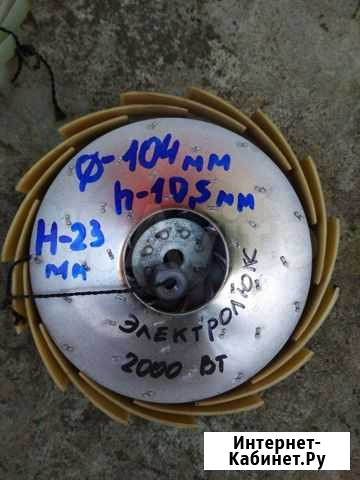 Ø-104мм
h-10,5мм
H-23
мм
ЭЛЕКТРОЛЮК
2000 ВТ
Интернет-
Кабинет.Ру